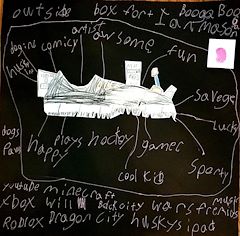 outside box fort I Booga Boo
I am mason
artist
awsome
fun
dogins comics
husky
savege
Lucky
dogs
Paws
happy
plays hockey
gamer
cool kid
Sporty
youtube minecraft
xbox will city wars fremius music
Roblox Dragon City huskys ipad